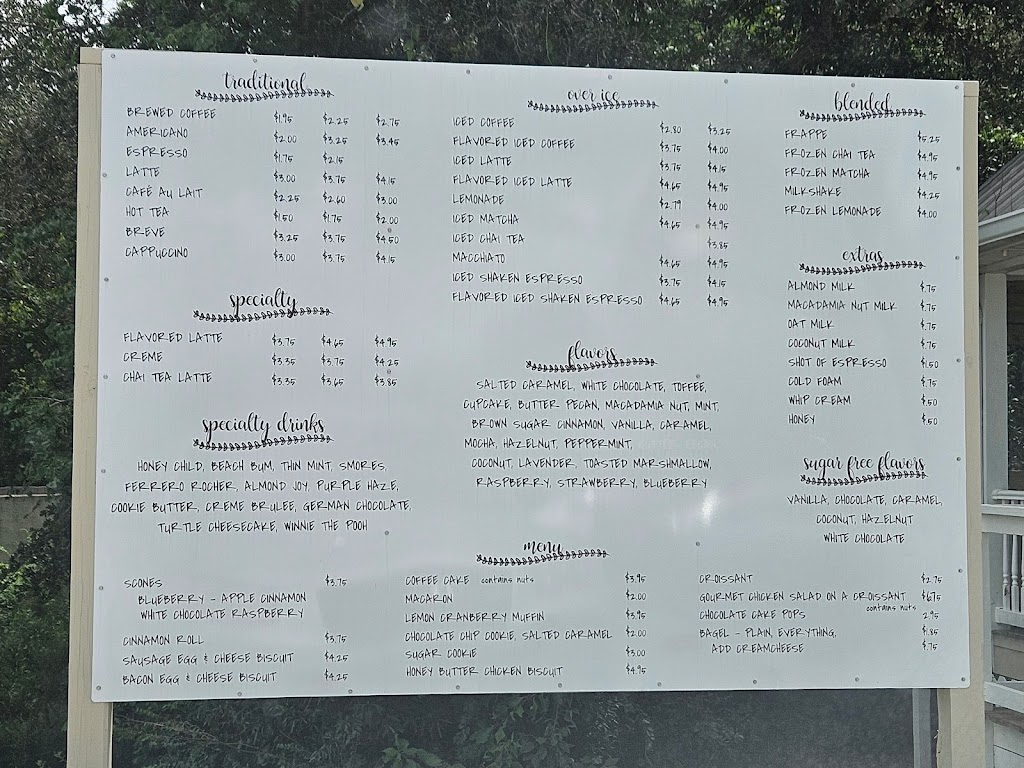 traditional
BREWED COFFEE $1.95 $2.25 $2.75
AMERICANO $2.00 $3.25 $3.45
ESPRESSO $1.75 $2.15
LATTE $3.00 $3.75 $4.15
CAFÉ AU LAIT $2.25 $2.60 $3.00
HOT TEA $1.50 $1.75 $2.00
BREVE $3.25 $3.75 $4.50
CAPPUCCINO $3.00 $3.75 $4.15
specialty
FLAVORED LATTE $3.75 $4.65 $4.95
CREME $3.35 $3.75 $4.25
CHAI TEA LATTE $3.35 $3.65 $3.85
specialty drinks
HONEY CHILD, BEACH BUM, THIN MINT, SMORES,
FERRERO ROCHER, ALMOND JOY, PURPLE HAZE,
COOKIE BUTTER, CREME BRULEE, GERMAN CHOCOLATE,
TURTLE CHEESECAKE, WINNIE THE POOH
over ice
ICED COFFEE $2.80 $3.25
FLAVORED ICED COFFEE $3.75 $4.00
ICED LATTE $3.75 $4.15
FLAVORED ICED LATTE $4.65 $4.95
LEMONADE $2.79 $4.00
ICED MATCHA $4.65 $4.95
ICED CHAI TEA $3.85
MACCHIATO $4.65 $4.95
ICED SHAKEN ESPRESSO $3.75 $4.15
FLAVORED ICED SHAKEN ESPRESSO $4.65 $4.95
flavors
SALTED CARAMEL, WHITE CHOCOLATE, TOFFEE,
CUPCAKE, BUTTER PECAN, MACADAMIA NUT, MINT,
BROWN SUGAR CINNAMON, VANILLA, CARAMEL,
MOCHA, HAZELNUT, PEPPERMINT,
COCONUT, LAVENDER, TOASTED MARSHMALLOW,
RASPBERRY, STRAWBERRY, BLUEBERRY
blended
FRAPPE $5.25
FROZEN CHAI TEA $4.95
FROZEN MATCHA $4.95
MILKSHAKE $4.25
FROZEN LEMONADE $4.00
extras
ALMOND MILK $.75
MACADAMIA NUT MILK $.75
OAT MILK $.75
COCONUT MILK $.75
SHOT OF ESPRESSO $1.50
COLD FOAM $.75
WHIP CREAM $.50
HONEY $.50
sugar free flavors
VANILLA, CHOCOLATE, CARAMEL,
COCONUT, HAZELNUT
WHITE CHOCOLATE
menu
SCONES $3.75
BLUEBERRY - APPLE CINNAMON
WHITE CHOCOLATE RASPBERRY
CINNAMON ROLL $3.75
SAUSAGE EGG & CHEESE BISCUIT $4.25
BACON EGG & CHEESE BISCUIT $4.25
COFFEE CAKE contains nuts $3.95
MACARON $2.00
LEMON CRANBERRY MUFFIN $3.95
CHOCOLATE CHIP COOKIE, SALTED CARAMEL $2.00
SUGAR COOKIE $3.00
HONEY BUTTER CHICKEN BISCUIT $4.95
CROISSANT $2.75
GOURMET CHICKEN SALAD ON A CROISSANT $6.75
contains nuts
CHOCOLATE CAKE POPS 2.95
BAGEL - PLAIN, EVERYTHING, $1.85
ADD CREAMCHEESE $.75